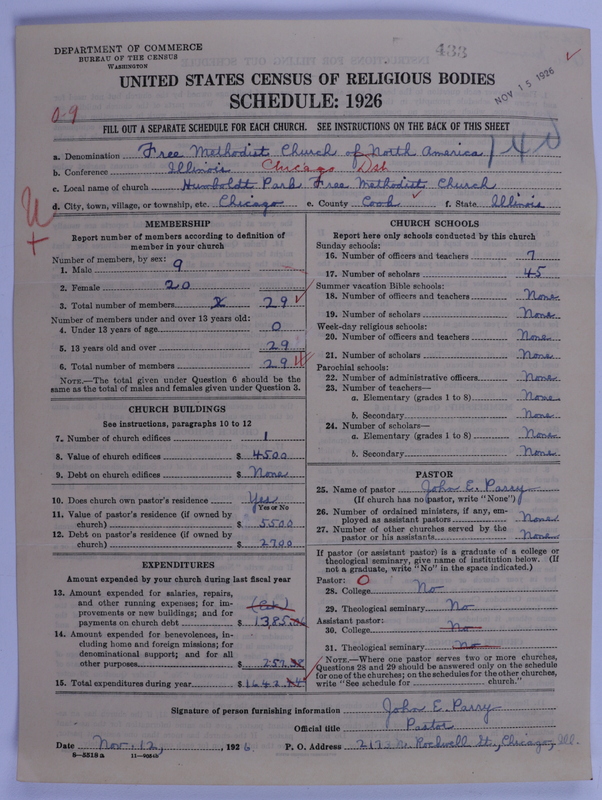 DEPARTMENT OF COMMERCE
BUREAU OF THE CENSUS
WASHINGTON
433
NOV 15 1926
UNITED STATES CENSUS OF RELIGIOUS BODIES
SCHEDULE: 1926
0-9
FILL OUT A SEPARATE SCHEDULE FOR EACH CHURCH. SEE INSTRUCTIONS ON THE BACK OF THIS SHEET
a. Denomination Free Methodist Church of North America
b. Conference Illinois Chicago Dst
c. Local name of church Humboldt Park Free Methodist Church
d. City, town, village, or township, etc. Chicago e. County Cook f. State Illinois
MEMBERSHIP
Report number of members according to definition of
member in your church
Number of members, by sex:
1. Male 9
2. Female 20
3. Total number of members 29
Number of members under and over 13 years old:
4. Under 13 years of age 0
5. 13 years old and over 29
6. Total number of members 29
NOTE.—The total given under Question 6 should be
same as the total of males and females given under Question 3.
CHURCH BUILDINGS
See instructions, paragraphs 10 to 12
7. Number of church edifices 1
8. Value of church edifices $ 4500
9. Debt on church edifices $ None
10. Does church own pastor's residence Yes
Yes or No
11. Value of pastor's residence (if owned by
church) $ 5500
12. Debt on pastor's residence (if owned by
church) $ 2700
EXPENDITURES
Amount expended by your church during last fiscal year
13. Amount expended for salaries, repairs,
and other running expenses; for im-
provements or new buildings; and for
payments on church debt $ 1385
14. Amount expended for benevolences, in-
cluding home and foreign missions; for
denominational support; and for all
other purposes $ 257
15. Total expenditures during year $ 1642
CHURCH SCHOOLS
Report here only schools conducted by this church
Sunday schools:
16. Number of officers and teachers 7
17. Number of scholars 45
Summer vacation Bible schools:
18. Number of officers and teachers None
19. Number of scholars None
Week-day religious schools:
20. Number of officers and teachers None
21. Number of scholars None
Parochial schools:
22. Number of administrative officers None
23. Number of teachers—
a. Elementary (grades 1 to 8) None
b. Secondary None
24. Number of scholars—
a. Elementary (grades 1 to 8) None
b. Secondary None
PASTOR
25. Name of pastor John E. Parry
(If church has no pastor, write "None")
26. Number of ordained ministers, if any, em-
ployed as assistant pastors None
27. Number of other churches served by the
pastor or his assistants None
If pastor (or assistant pastor) is a graduate of a college or
theological seminary, give name of institution below. (If
not a graduate, write "No" in the space indicated.)
Pastor: 0
28. College No
29. Theological seminary No
Assistant pastor:
30. College No
31. Theological seminary No
NOTE.—Where one pastor serves two or more churches,
Questions 28 and 29 should be answered only on the schedule
for one of the churches; on the schedules for the other churches,
write "See schedule for church."
Signature of person furnishing information John E. Parry
Official title Pastor
Date Nov. 12, 1926. P. O. Address 2173 N. Rockwell St., Chicago, Ill.
8-5518a 11-9054b